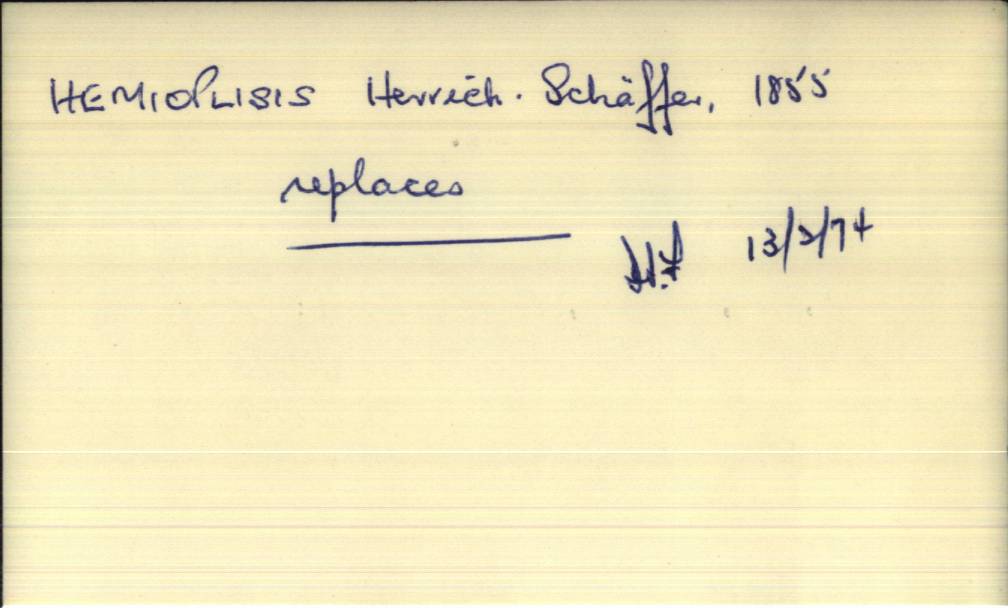 HEMIOPLISIS Herrich-Schäffer, 1855
replaces
13/2/74